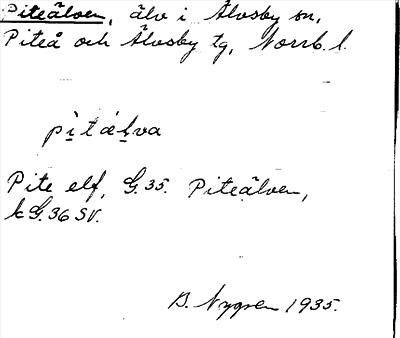 Piteälven, älv i Älvsby sn,
Piteå och Älvsby tg, Norrb. l.
pìtálva
Pite elf, G.35. Piteälven,
k G.36 SV.
B. Nygren 1935.